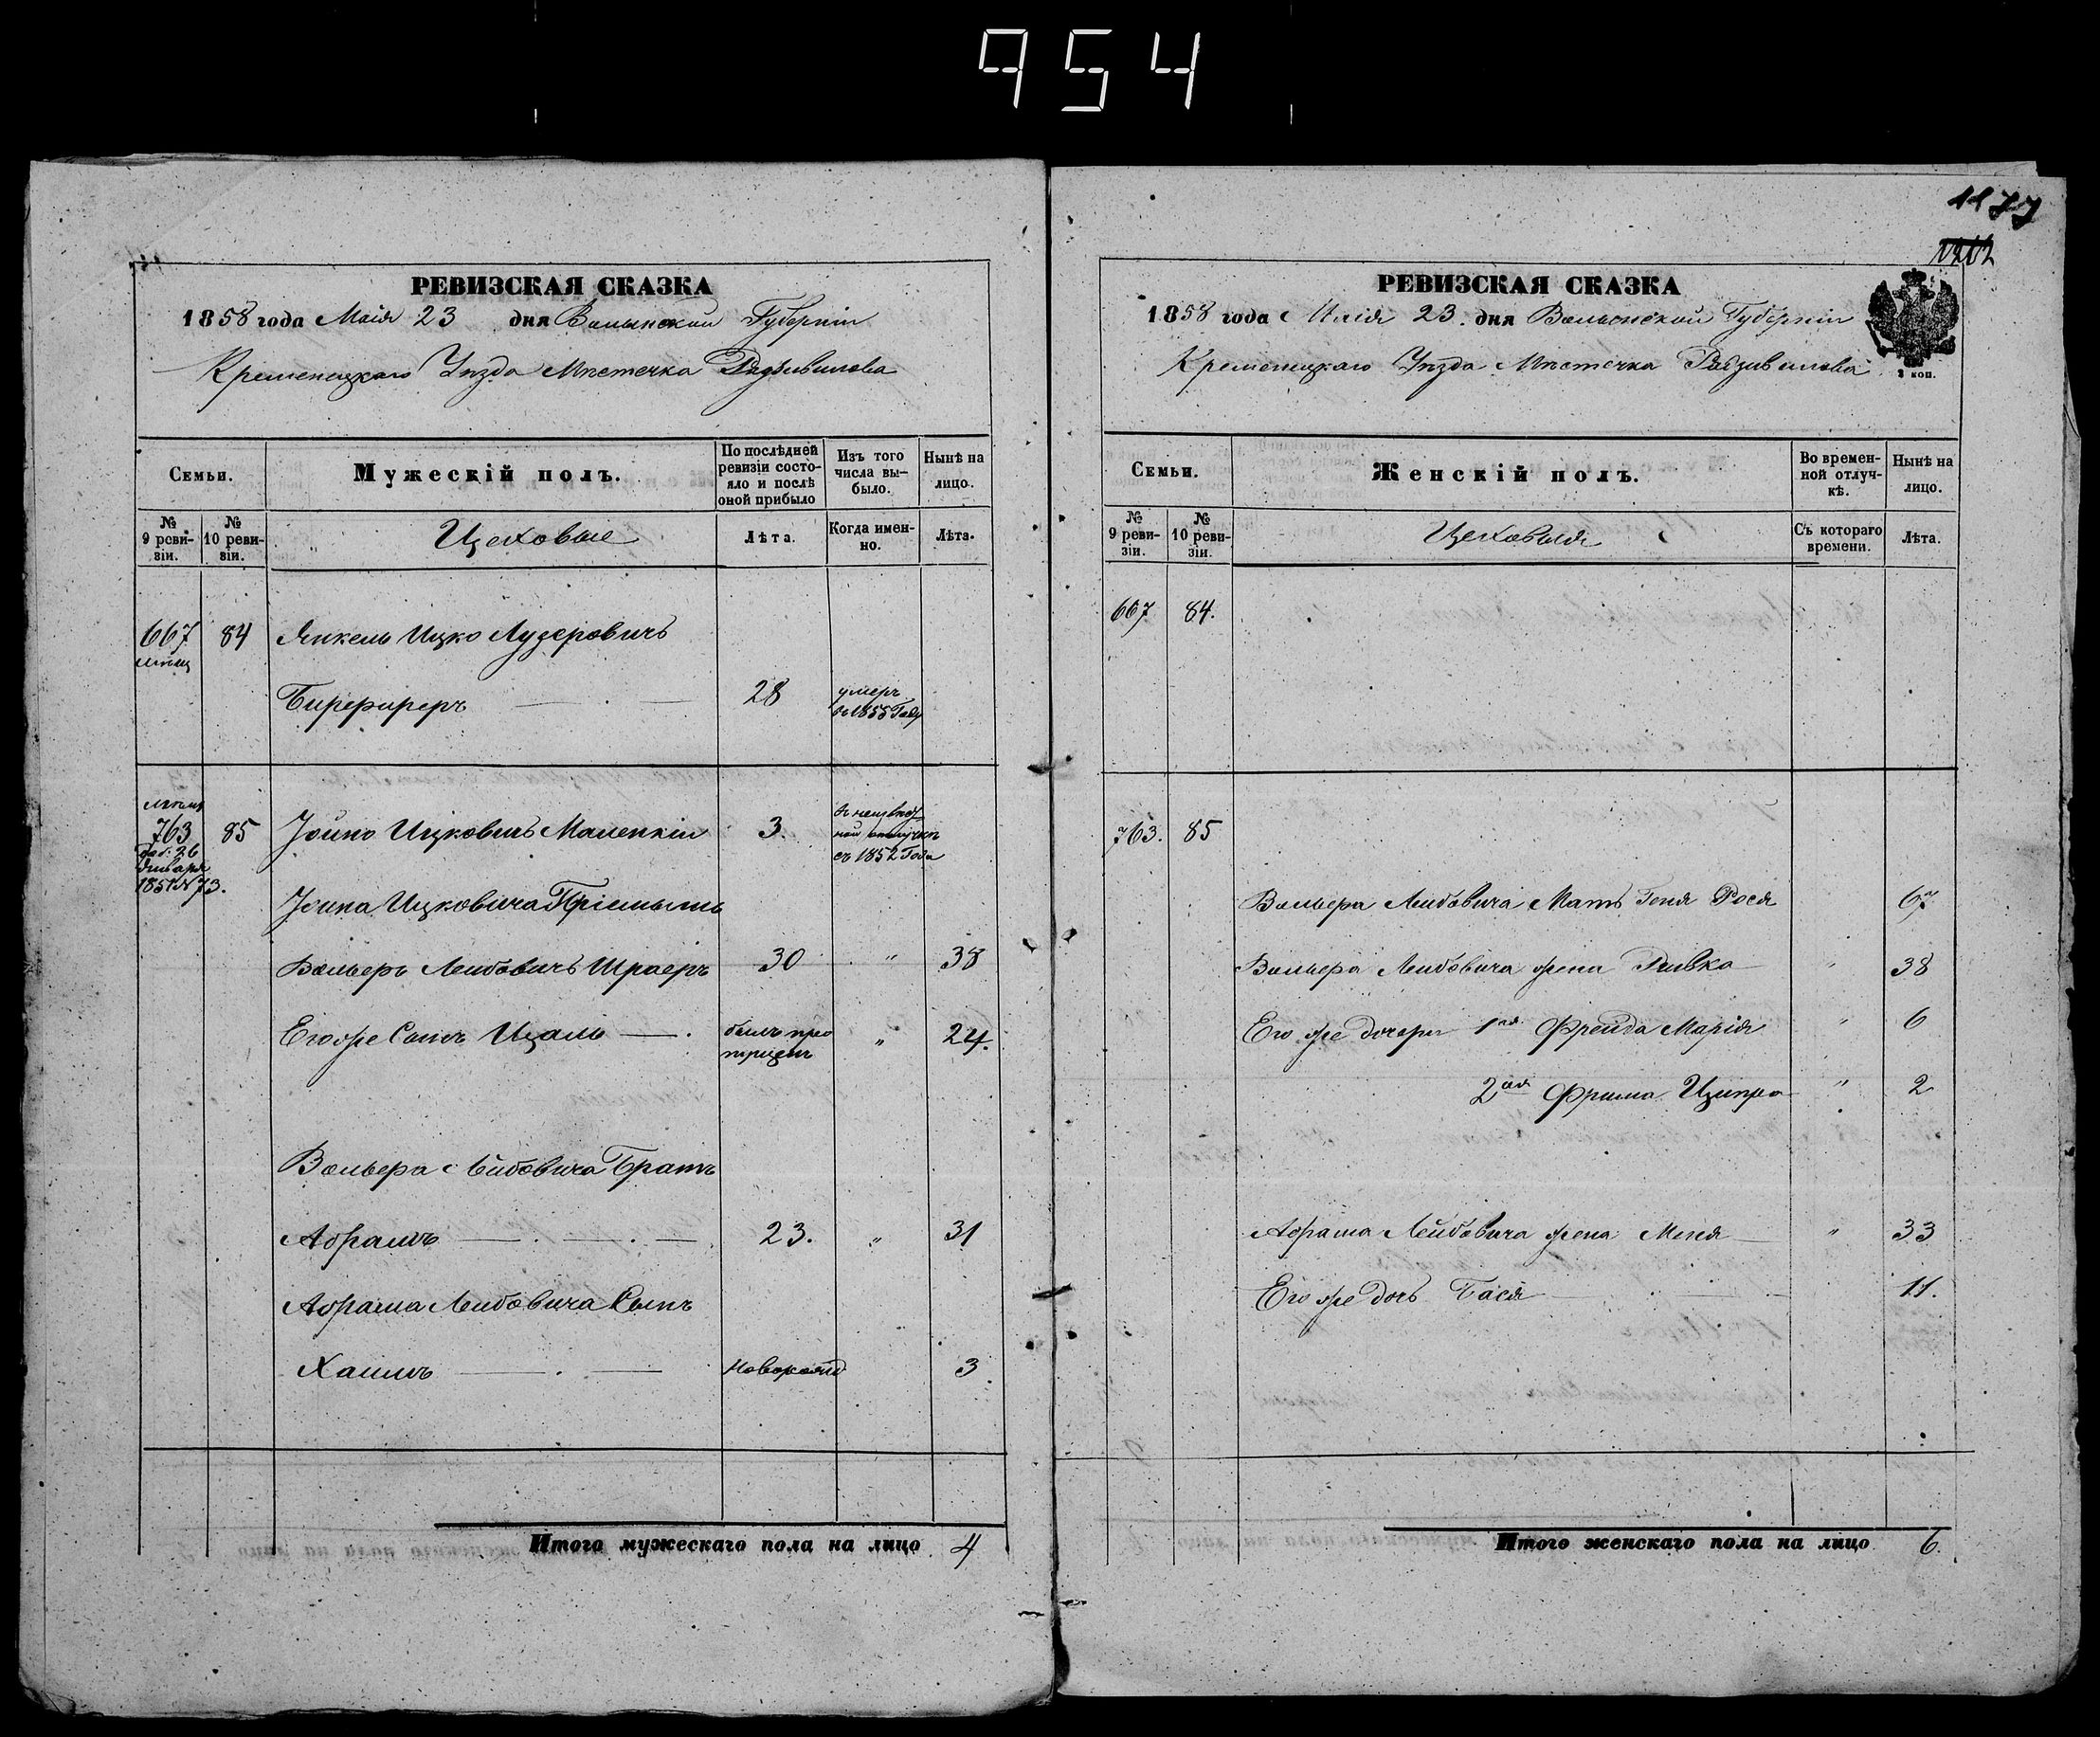 954
1177
1212
РЕВИЗСКАЯ СКАЗКА
1858 года Маія 23 дня Волынской Губерніи
Кременецкаго Уѣзда Мѣстечка Радзивилова
Семьи.
Мужескій полъ.
По послѣдней ревизіи состо-
яло и послѣ
оной прибыло
Изъ того
числа вы-
было.
Нынѣ на
лицо.
№
9 реви-
зіи.
№
10 реви-
зіи.
Цеховые
Лѣта.
Когда имен-
но.
Лѣта.
667 84 Янкель Ицко Лузеровичъ
мѣщ
Бирфиреръ 28 умеръ
въ 1855 Году
763 85 Іойно Ицковичъ Маленкій 3. въ неизвѣст
ной отлучкѣ
съ 1852 Года
26
Января
1851 № 73.
Іойна Ицковича Пріемышъ
Вольверъ Лейбовичъ Шраеръ 30 " 38
Его же Сынъ Цаль былъ про
пущен " 24.
Вольвера Лейбовича Братъ
Абрамъ 23. " 31
Абрама Лейбовича Сынъ
Хаимъ Новорожд 3
Итого мужескаго пола на лицо 4
РЕВИЗСКАЯ СКАЗКА
1858 года Маія 23. дня Волынской Губерніи
Кременецкаго Уѣзда Мѣстечка Радзивилова
3 коп.
Семьи.
Женскій полъ.
Во времен-
ной отлуч-
кѣ.
Нынѣ на
лицо.
№
9 реви-
зіи.
№
10 реви-
зіи.
Цеховыя
Съ котораго
времени.
Лѣта.
667 84.
763. 85
Вольвера Лейбовича Мать Геня Рося 67
Вольвера Лейбовича жена Ривка " 38
Его же дочери 1ая Фрейда Марія " 6
2ая Фрима Ципра " 2
Абрама Лейбовича жена Меня " 33
Его же дочь Бася 11.
Итого женскаго пола на лицо 6.